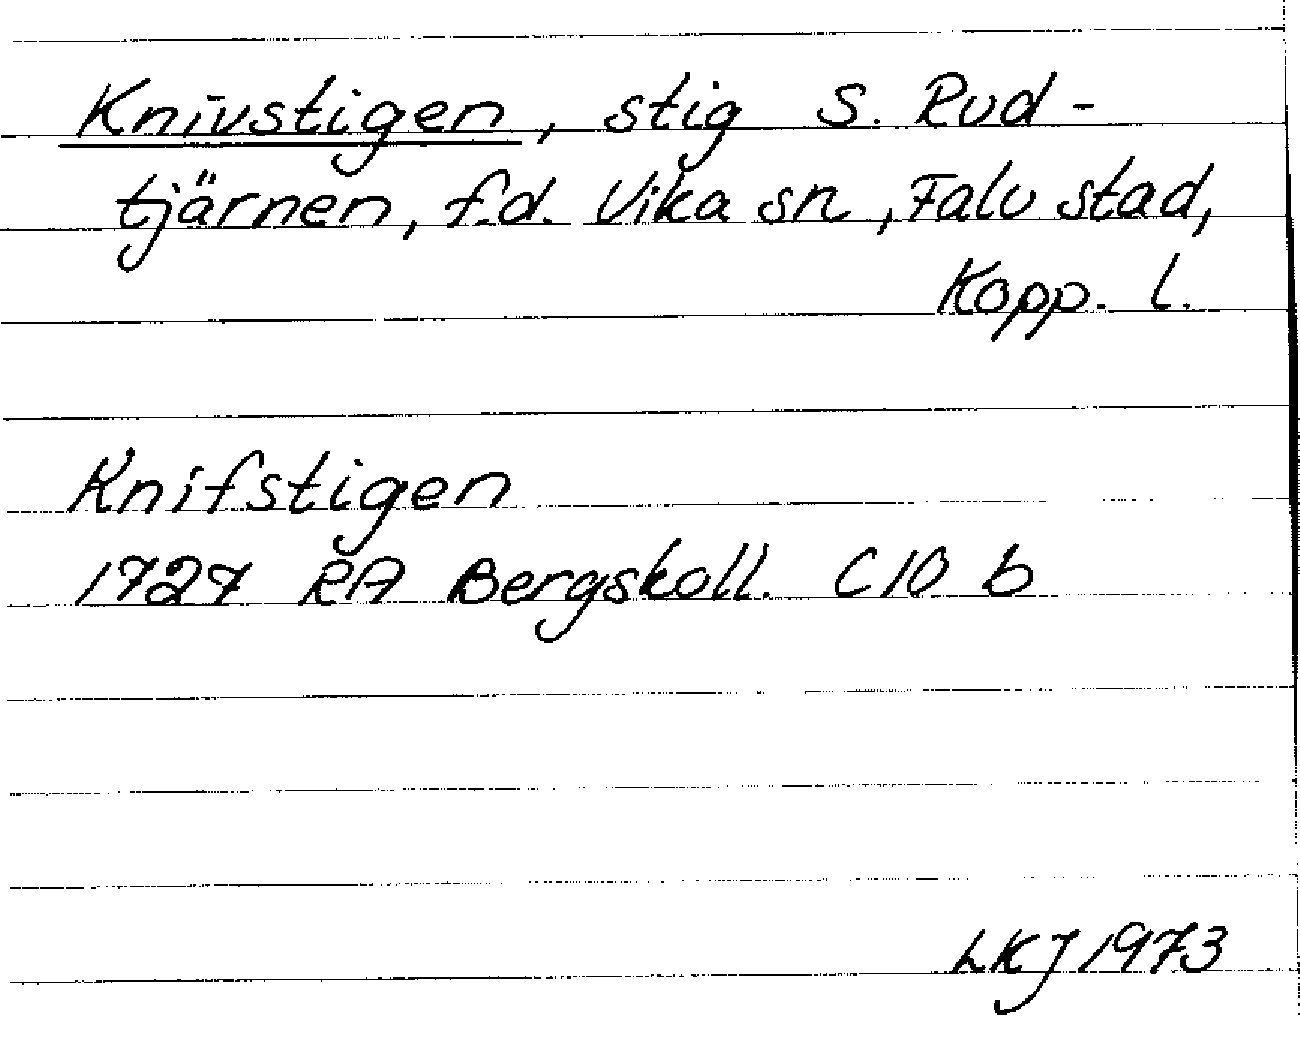 Knivstigen, stig S. Rud-
tjärnen, f.d. Vika sn, Falu stad,
Kopp. l.
Knifstigen
1727 RA Bergskoll. C10 b
LKJ 1973